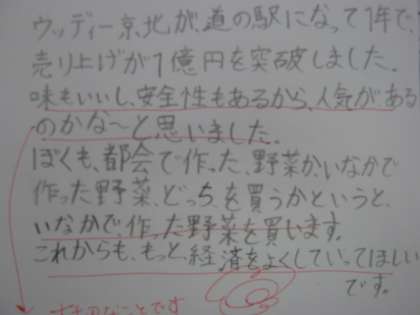 ウッディー京北が、道の駅になって1年で、
売り上げが1億円を突破しました。
味もいいし、安全性もあるから、人気がある
のかな〜と思いました。
ぼくも、都会で作った、野菜か、いなかで
作った野菜、どっちを買うかというと、
いなかで、作った野菜を買います。
これからも、もっと、経済をよくしていってほしい
です。
なことです